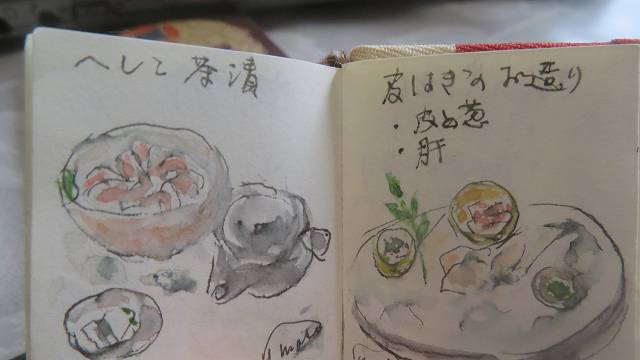 へしこ茶漬
皮はぎのお造り
・皮と葱
・肝